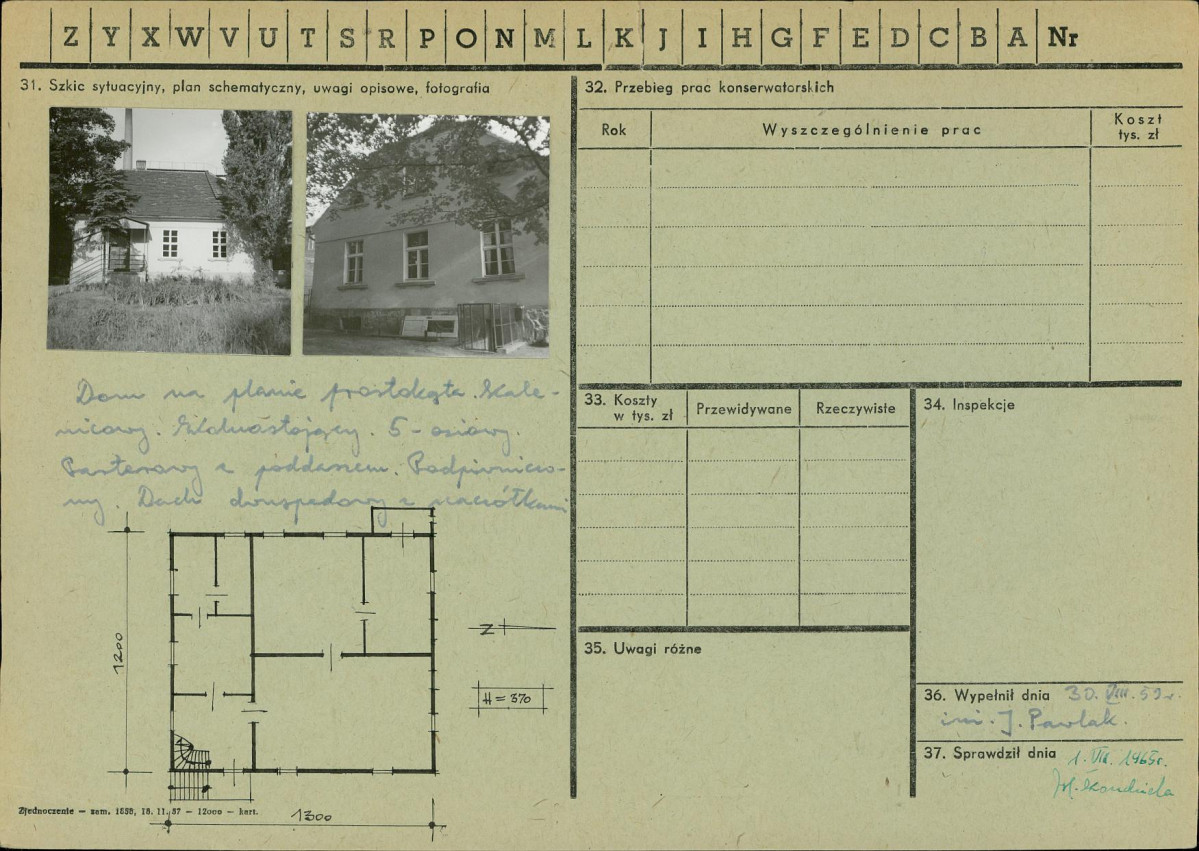 Z Y X W V U T S R P O N M L K J I H G F E D C B A Nr
31. Szkic sytuacyjny, plan schematyczny, uwagi opisowe, fotografia
Dom na planie prostokąta. Kale-
nicowy. 5-osiowy.
Parterowy z poddaszem. Podpiwniczo-
ny. Dach dwuspadowy z naczółkami
1200
Z
H = 370
1300
Zjednoczenie – zam. 1558, 18. 11. 57 – 12000 – kart.
32. Przebieg prac konserwatorskich
Rok
Wyszczególnienie prac
Koszt
tys. zł
33. Koszty
w tys. zł
Przewidywane
Rzeczywiste
34. Inspekcje
35. Uwagi różne
36. Wypełnił dnia 30. VIII. 59 r.
inż. J. Pawlak.
37. Sprawdził dnia
1. 1965r.